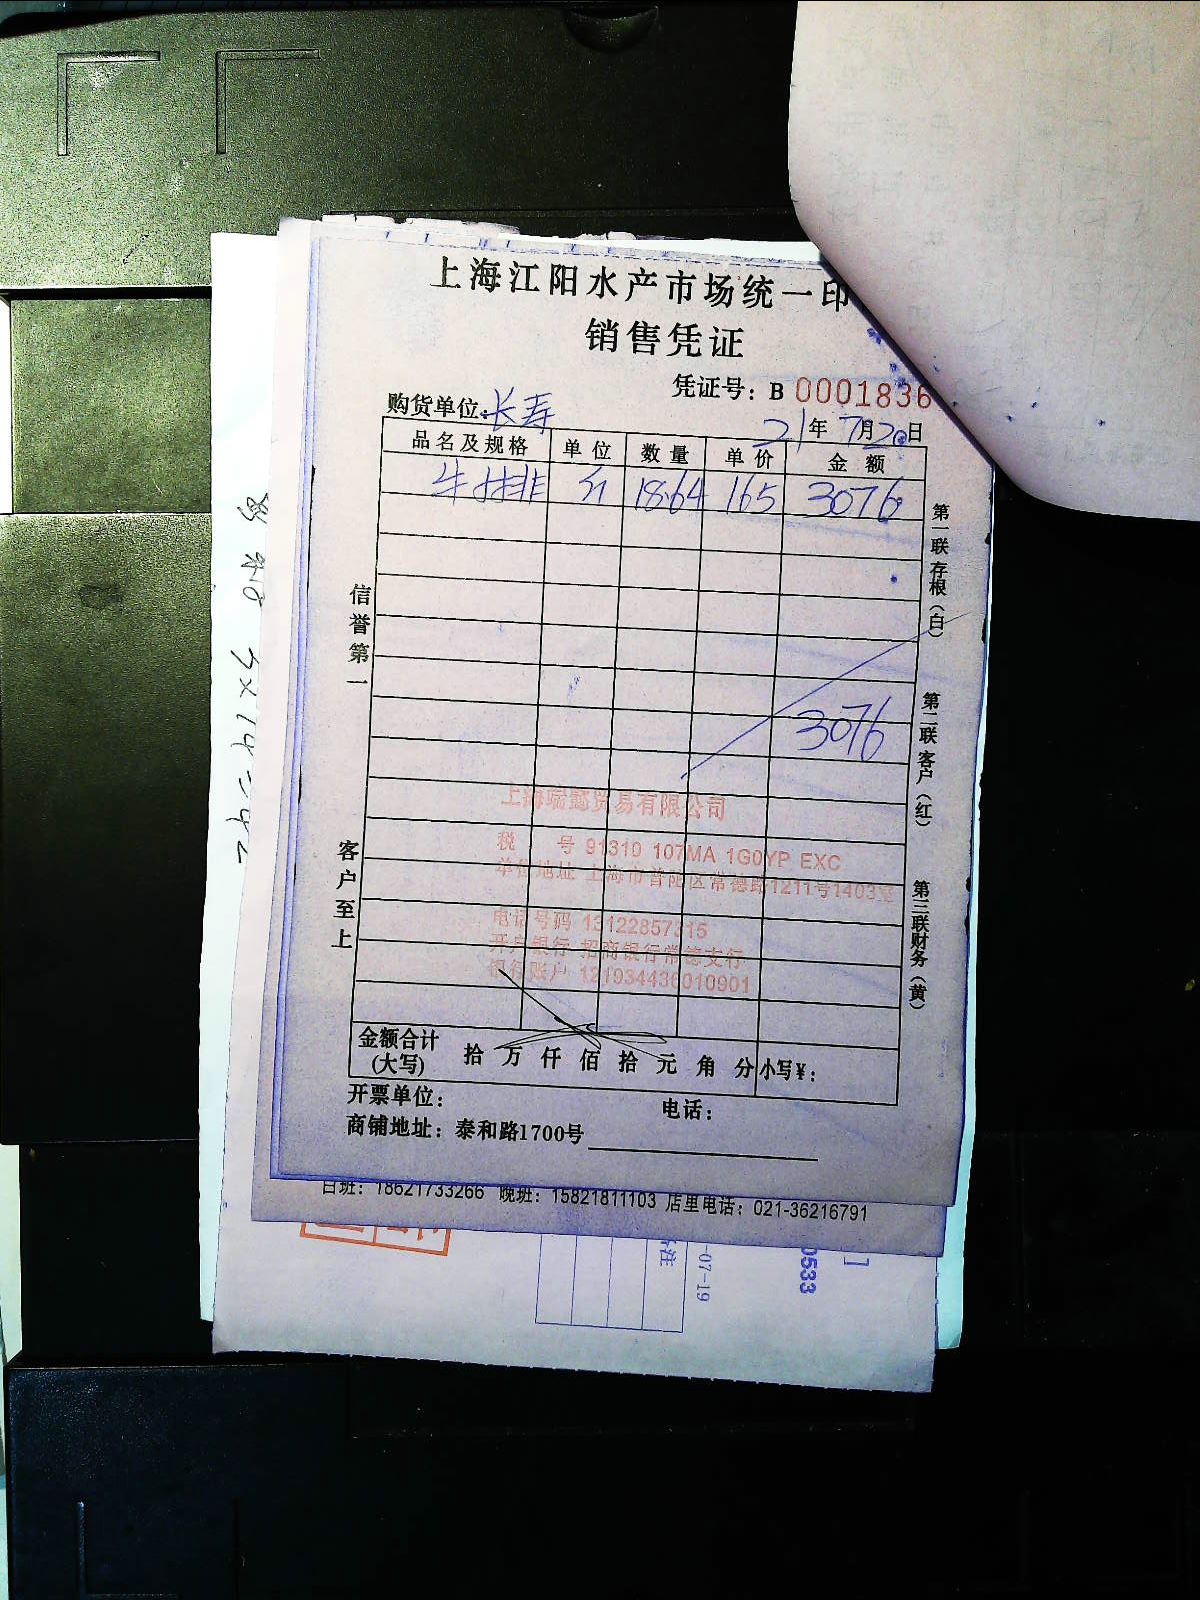 上海江阳水产市场统一印
销售凭证
凭证号：B 0001836
购货单位：长寿
21年7月20日
品名及规格 单位 数量 单价 金额
牛排 斤 18.64 165 3076
3076
信誉第一
客户至上
第一联存根（白）
第二联客户（红）
第三联财务（黄）
上海瑞懿贸易有限公司
税 号 91310 107MA 1G0YP EXC
单位地址 上海市普陀区常德路1211号1403室
电话号码 13122857315
开户银行 招商银行常德支行
银行账户 121934436010901
金额合计（大写） 拾 万 仟 佰 拾 元 角 分 小写¥：
开票单位： 电话：
商铺地址：泰和路1700号
白班：18621733266 晚班：15821811103 店里电话：021-36216791
-07-19
0533